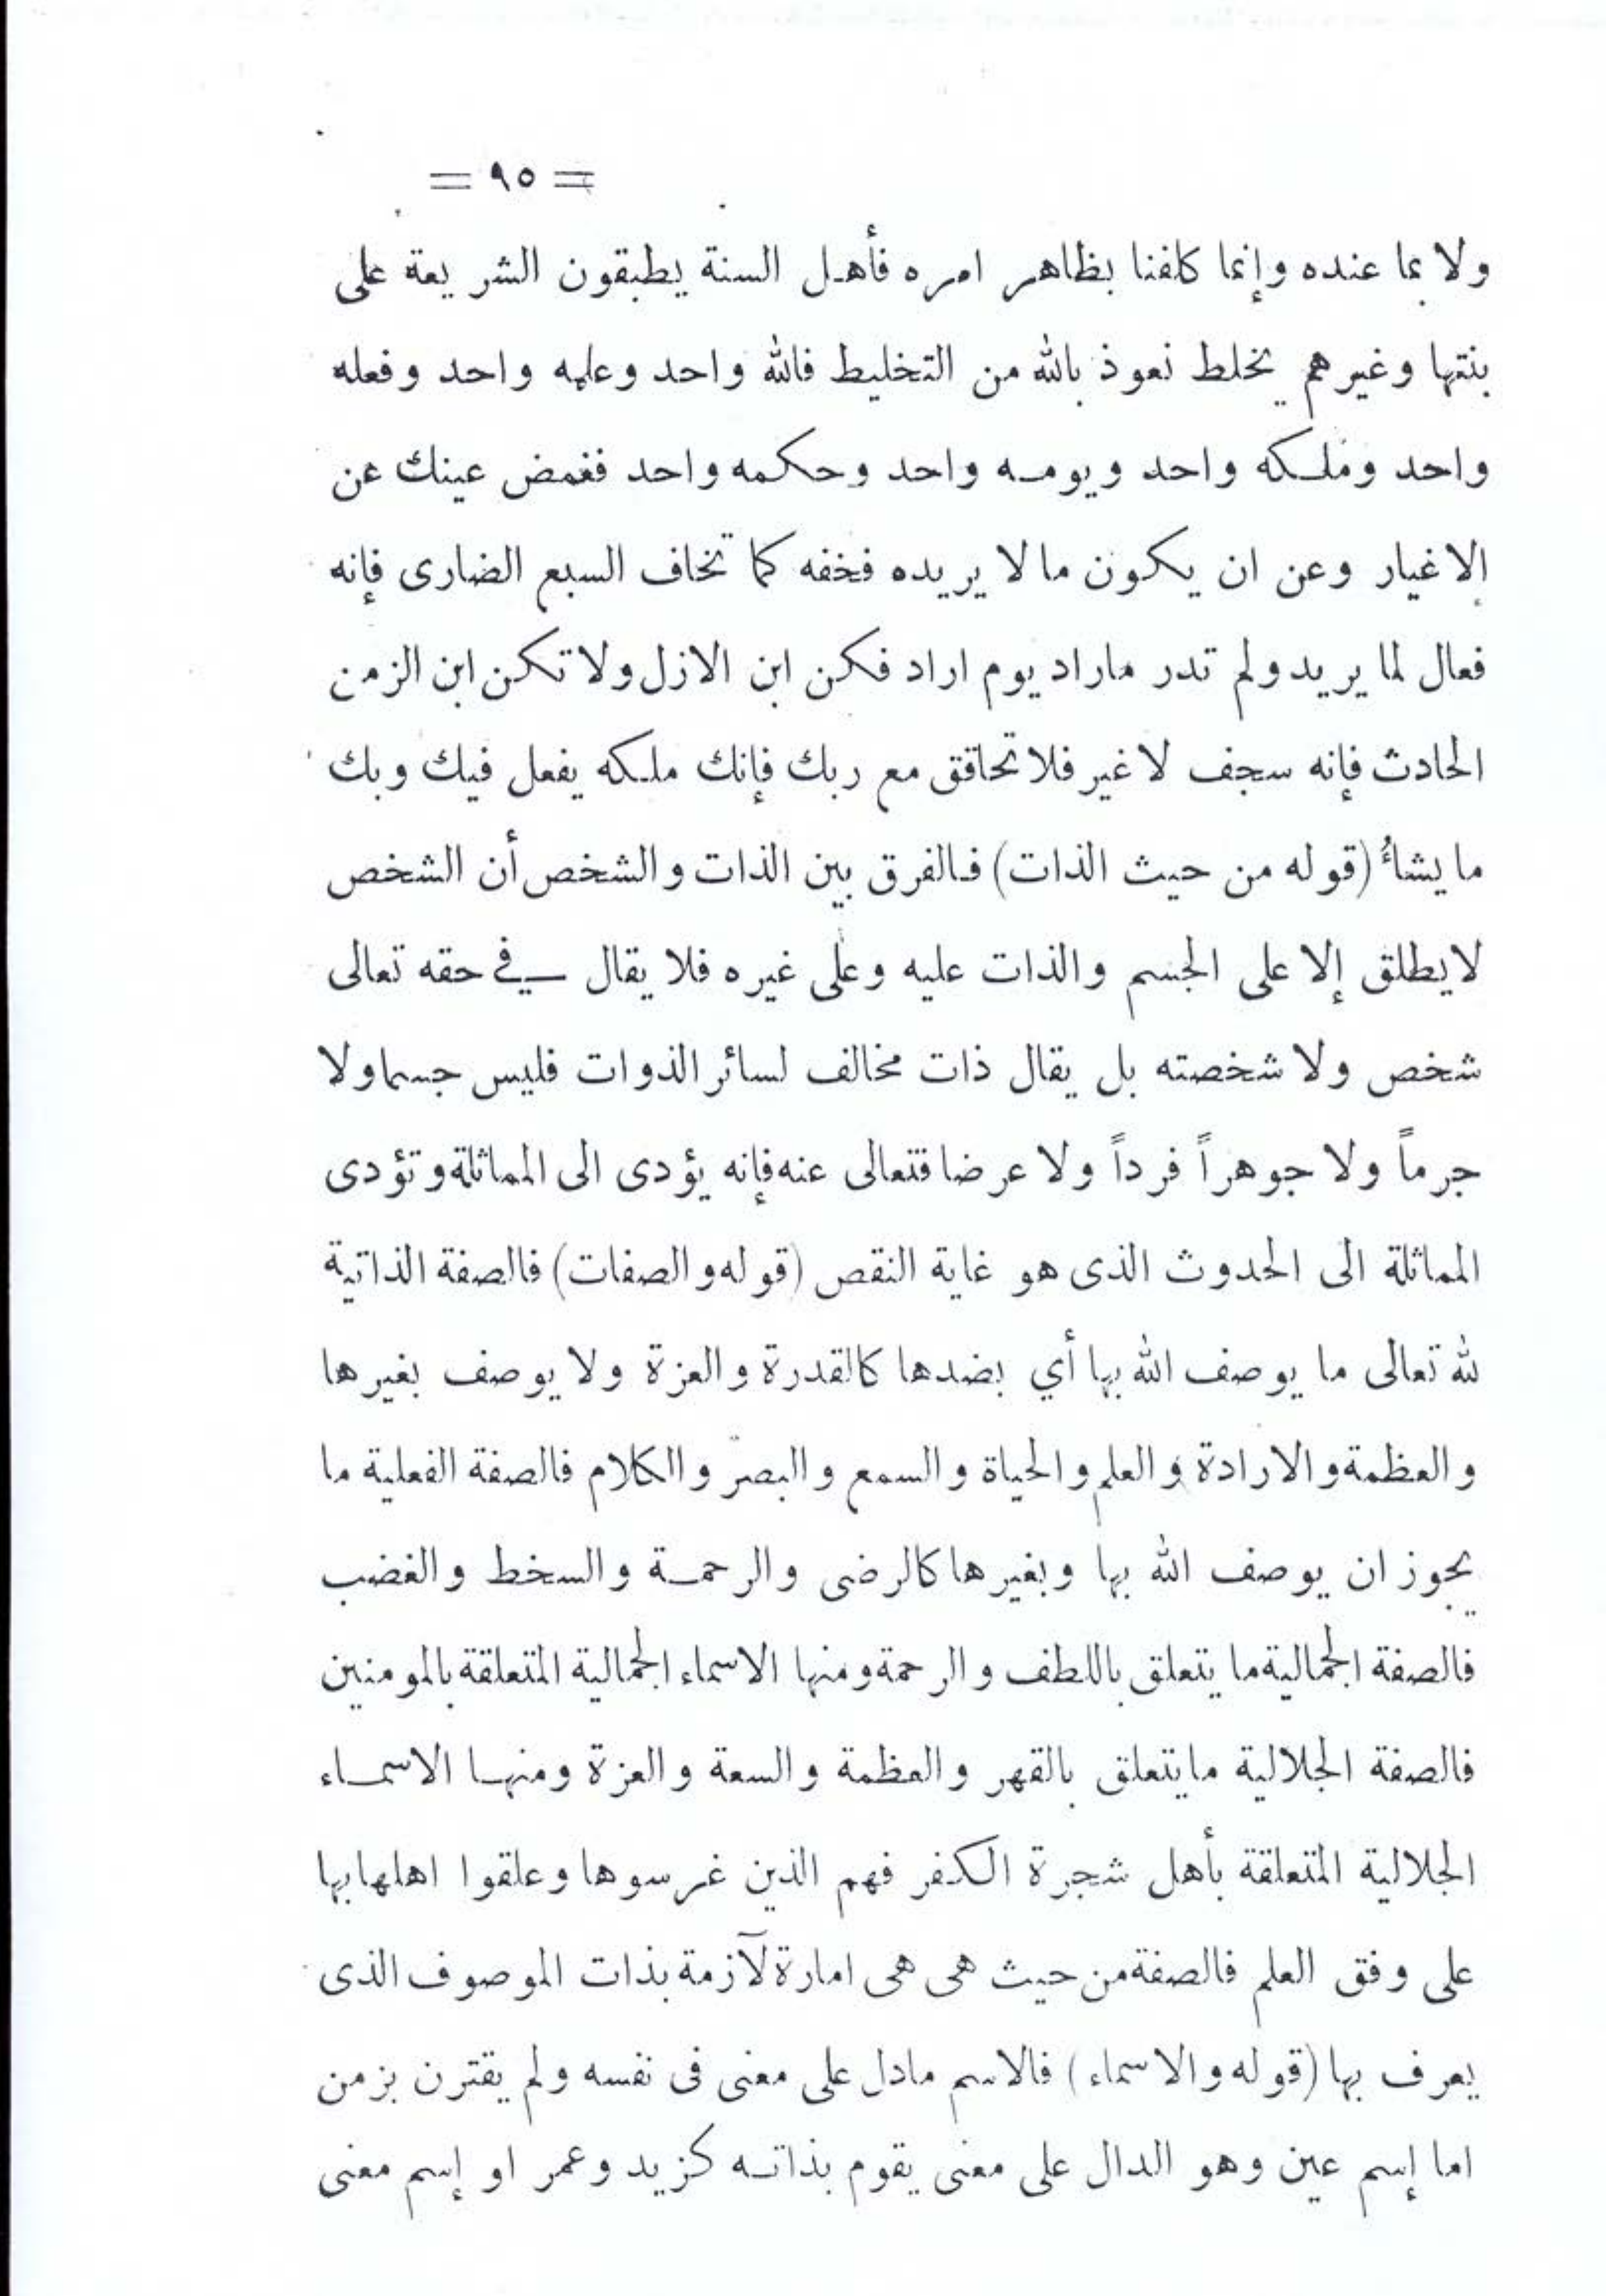 = ٩٥ =
ولا بما عنده وإنما كلفنا بظاهر امره فأهل السنة يطبقون الشريعة على
بنتها وغيرهم يخلط نعوذ بالله من التخليط فالله واحد وعلمه واحد وفعله
واحد وملكه واحد ويومه واحد وحكمه واحد فغمض عينك عن
الاغيار وعن ان يكون ما لا يريده فخفه كما تخاف السبع الضارى فإنه
فعال لما يريد ولم تدر ماراد يوم اراد فكن ابن الازل ولا تكن ابن الزمن
الحادث فإنه سجف لا غير فلا تحاقق مع ربك فإنك ملكه يفعل فيك وبك
ما يشاءُ (قوله من حيث الذات) فالفرق بين الذات والشخص أن الشخص
لا يطلق إلا على الجسم والذات عليه وعلى غيره فلا يقال في حقه تعالى
شخص ولا شخصته بل يقال ذات مخالف لسائر الذوات فليس جسما ولا
جرماً ولا جوهراً فرداً ولا عرضا فتعالى عنه فإنه يؤدى الى المماثلة وتؤدى
المماثلة الى الحدوث الذى هو غاية النقص (قوله والصفات) فالصفة الذاتية
لله تعالى ما يوصف الله بها أي بضدها كالقدرة والعزة ولا يوصف بغيرها
والعظمة والارادة والعلم والحياة والسمع والبصر والكلام فالصفة الفعلية ما
يجوز ان يوصف الله بها وبغيرها كالرضى والرحمة والسخط والغضب
فالصفة الجمالية ما يتعلق باللطف والرحمة ومنها الاسماء الجمالية المتعلقة بالمومنين
فالصفة الجلالية ما يتعلق بالقهر والعظمة والسعة والعزة ومنها الاسماء
الجلالية المتعلقة بأهل شجرة الكفر فهم الذين غرسوها وعلقوا اهلها بها
على وفق العلم فالصفة من حيث هى هى امارة لآزمة بذات الموصوف الذى
يعرف بها (قوله والاسماء) فالاسم مادل على معنى فى نفسه ولم يقترن بزمن
اما إسم عين وهو الدال على معنى يقوم بذاته كزيد وعمر او إسم معنى